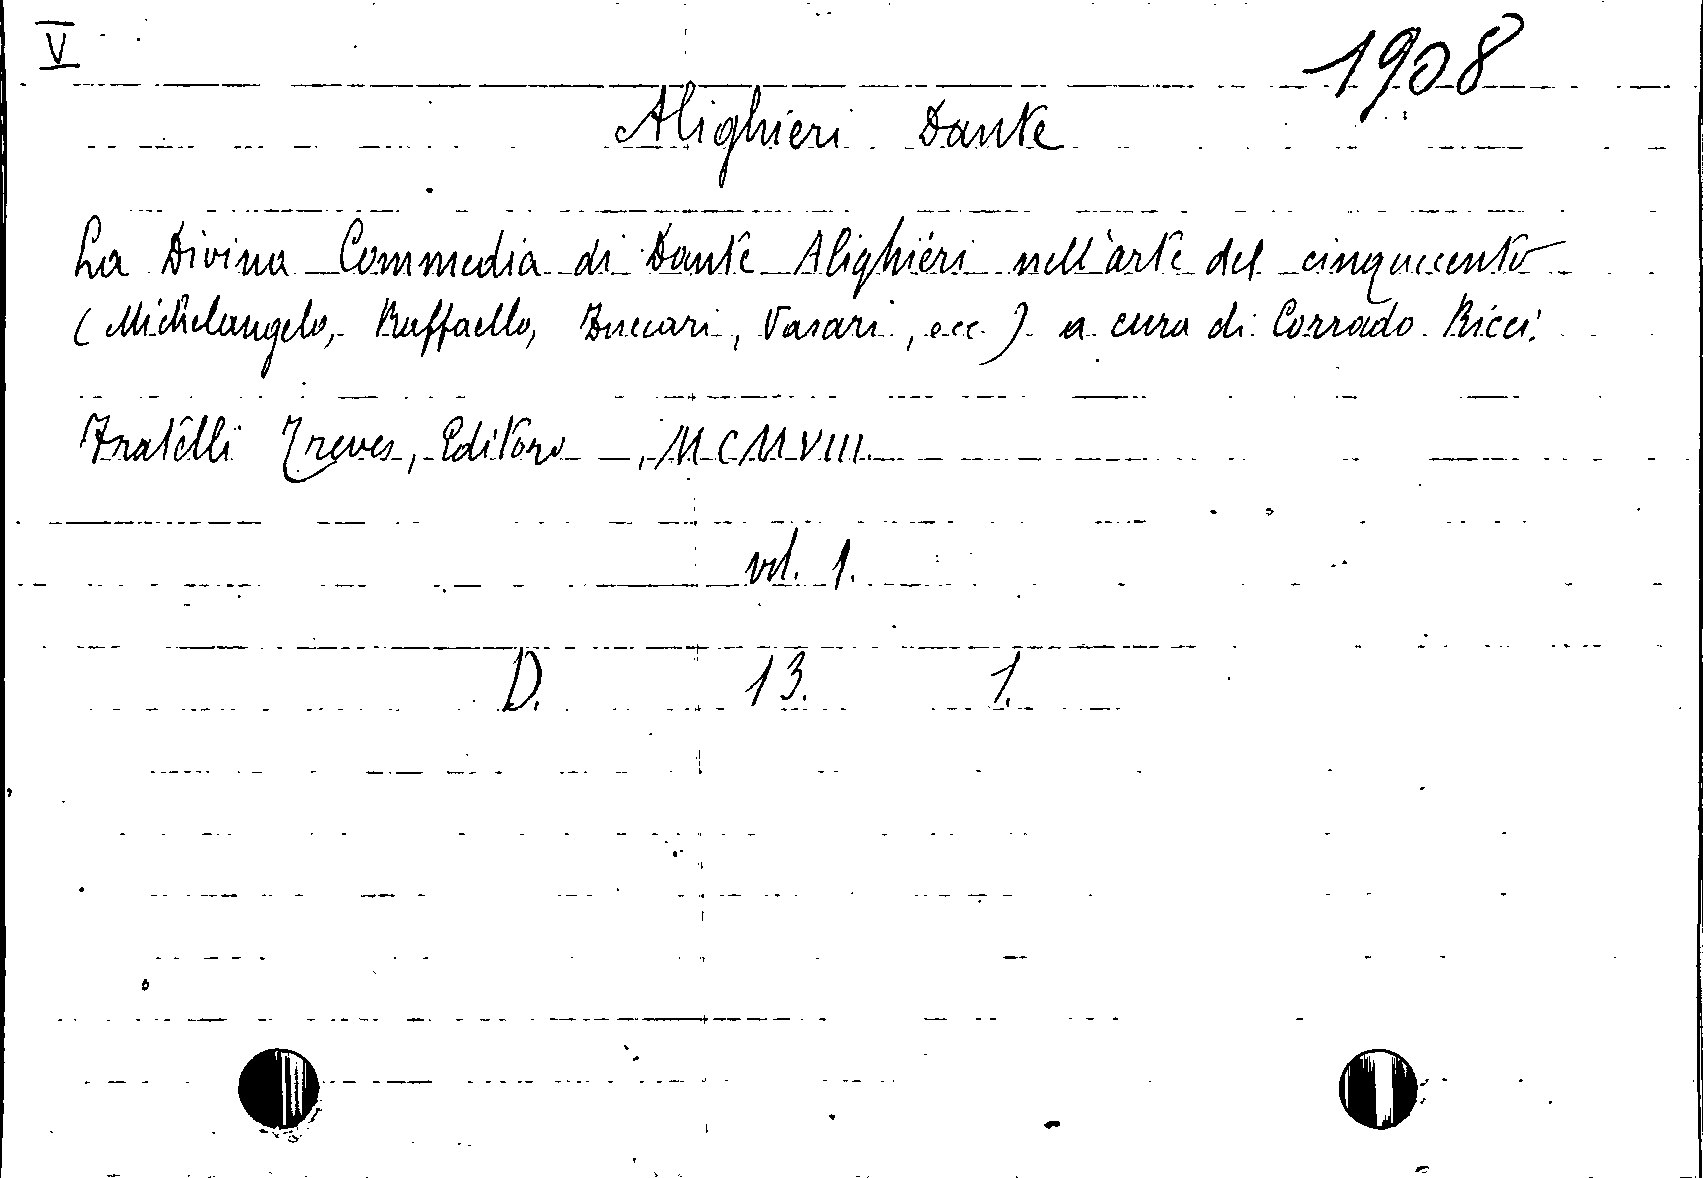 V
1908
Alighieri Dante
La Divina Commedia di Dante Alighieri nell'arte del cinquecento
(Michelangelo, Raffaello, Zuccari, Vasari, ecc.) a cura di Corrado Ricci.
Fratelli Treves, Editore, MCMVIII.
vol. 1.
D. 13. 1.